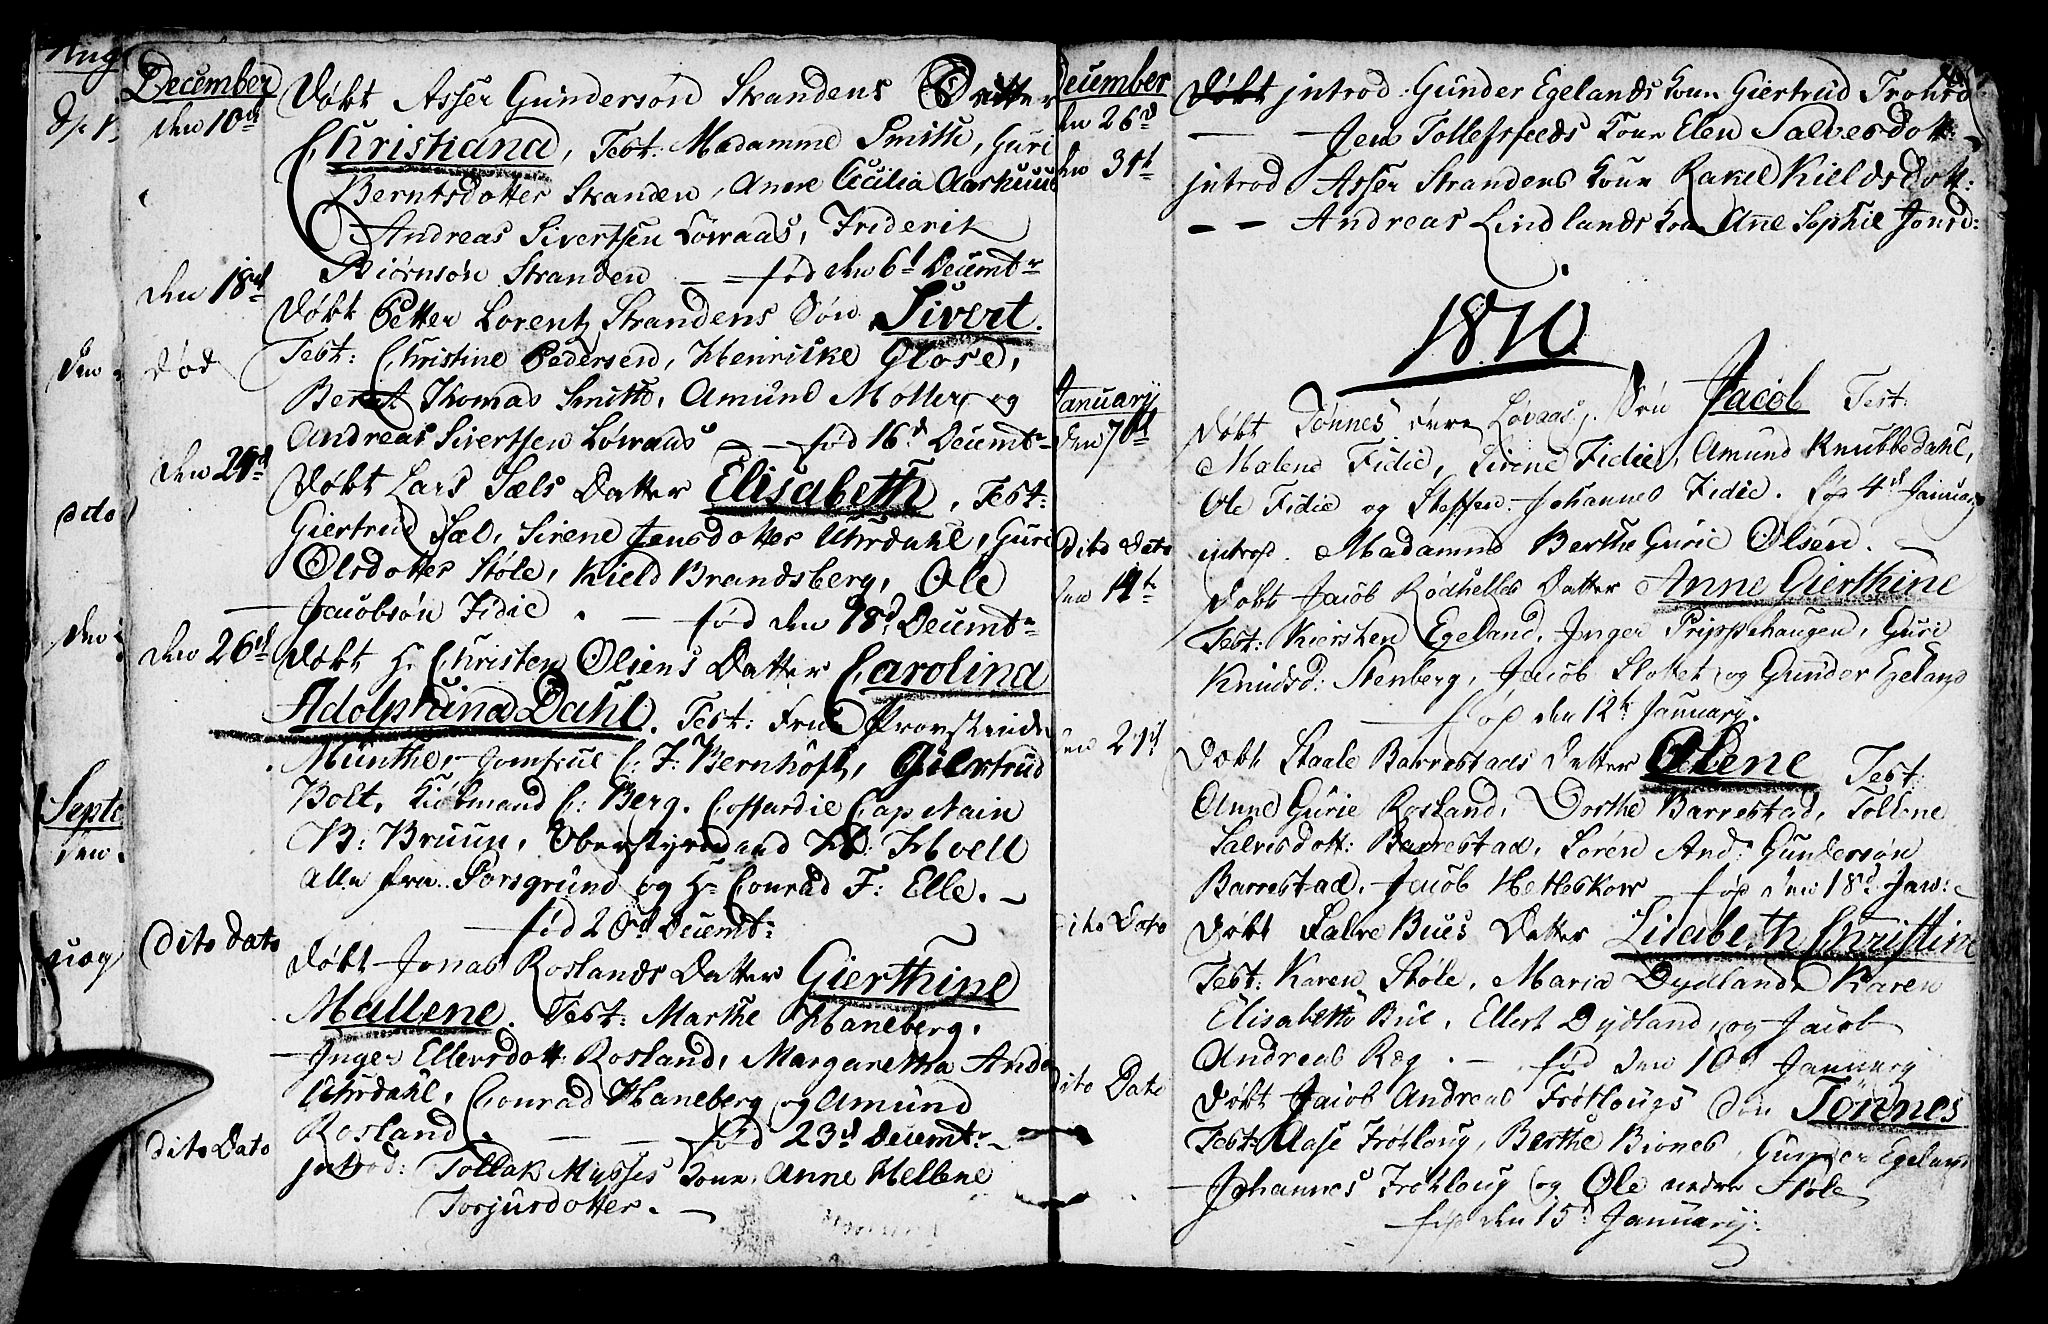 December
den 10d Døbt Asser Gundersøn Strandens Datter
Christiana, Test: Madamme Smith, Guri
Berntsdotter Stranden, Anne Cecilia Aarhuus
Andreas Sivertsen Løvaas, Friderik
Biörnsön Stranden - - fød den 6d Decembr
den 18d Døbt Petter Lorentz Strandens Sön Sivert.
død Test: Christine Pedersen, Henricke Glose,
Berent Thomas Smith, Amund Møller og
Andreas Sivertsen Løvaas - - fød 16d Decembr
den 24d Døbt Lars Sæls Datter Elisabeth, Test:
Giertrud Sæl, Sirene Jensdotter Uhrdahl, Guri
Olsdotter Støle, Kield Brandsberg, Ole
Jacobsøn Fidie - fød den 18d Decembr
den 26d Døbt Hr Christen Olsens Datter Carolina
Adolphina Dahl. Test: Frue Provstinde
Münthe, Jomfrue C: F: Bernhoft, Giertrud
Bolt, Kiöbmand C: Berg, Coffardie Captain
B: Bruun, Oberstyrmand H: Hvell
alle fra Porsgrund og Hr Conrad F: Elle. -
fød 20d Decembr
dito dato Døbt Jonas Roslands Datter Gierthine
Mallene. Test: Marthe Haneberg,
Inger Ellersdott: Rosland, Margaretha And
Uhrdahl, Conrad Haneberg og Amund
Rosland. - - fød 23d Decembr -
dito Dato introd: Tollak Mysses Kone, Anne Hellene
Torjursdotter. -
December
den 26d introd: Gunder Egelands Kone Giertrud Trohsd
- - Jens Tollefsfeeds Kone Elen Salvesdott:
den 31t introd Asser Strandens Kone Rakel Kieldsdott:
- - Andreas Lindlands Kone Anne Sophie Jonsd:
1810
January
den 7d Døbt Tønnes øvre Løvaas Sön Jacob Test:
Malene Fidie, Sirene Fidie, Amund Knubbedahl,
Ole Fidie og Steffen Johannes Fidie. fød 4d January
dito dato introd. Madamme Berthe Gurie Olsen. -
den 14t Døbt Jacob Rødhelles Datter Anne Gierthine
Test: Kiersten Egeland, Inger Prippehaugen, Guri
Knudsd: Stenberg, Jacob Slottet og Gunder Egeland
fød den 12te January.
den 21d Døbt Staale Barrestads Datter Olene Test:
Anne Gurie Rosland, Dorthe Barrestad, Tollene
Salvisdott: Barrestad, Sören And: Gundersøn
Barrestad, Jacob Hetleskow - fød den 18d Jan:
dito Dato Døbt Salve Bues Datter Lisabeth Christine
Test: Karen Støle, Maria Dydland, Karen
Elisabeth Bue, Ellert Dydland, og Jacob
Andreas Reg - fød den 10d January
dito Dato Døbt Jacob Andreas Frøtlougs Sön Tönnes
Test: Aase Frøtloug, Berthe Biones, Gunder Egeland
Johannes Frøtloug og Ole nedre Støle
fød den 15d January.